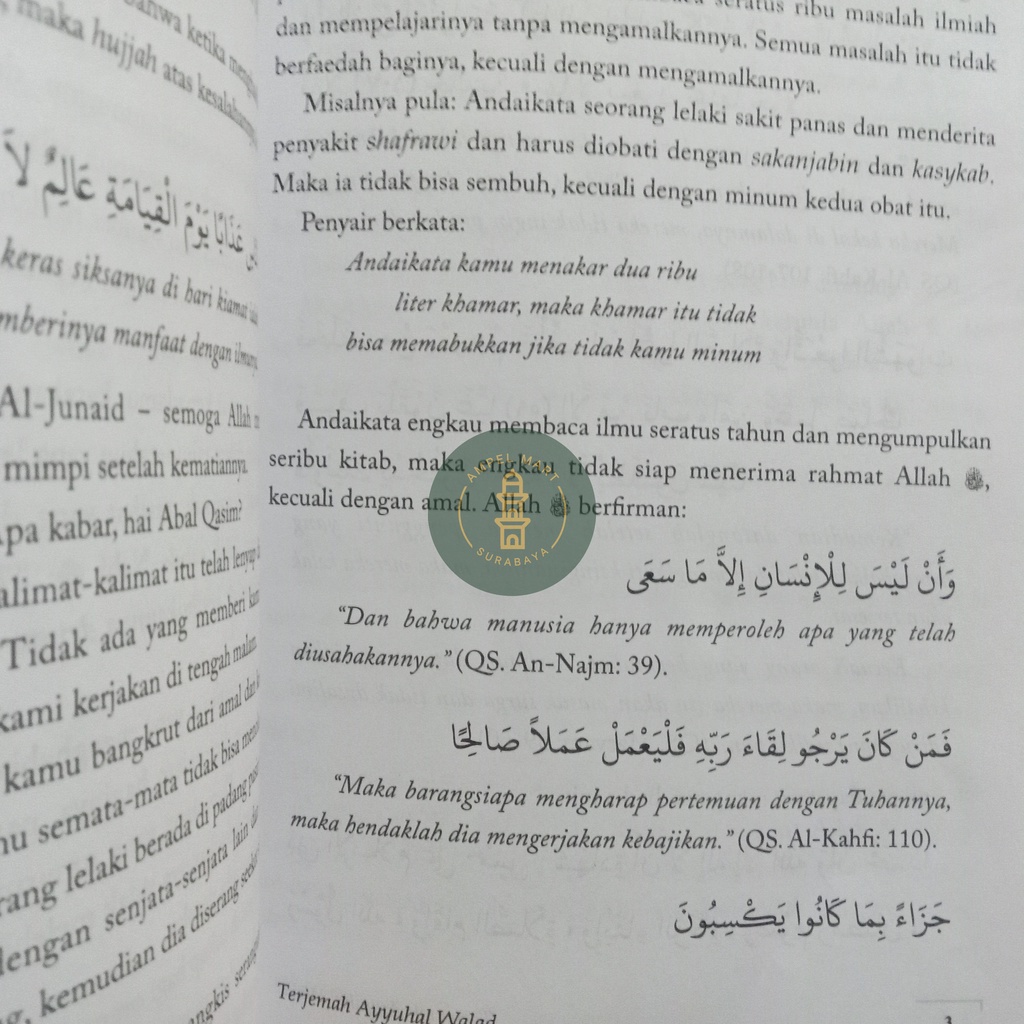 maka hujjah atas
عَذَابًا يَوْمَ الْقِيَامَةِ عَالِمٌ لاَ
keras siksanya di hari kiamat
mberinya manfaat dengan
Al-Junaid – semoga Allah
mimpi setelah kematiannya.
pa kabar, hai Abal Qasim?
alimat-kalimat itu telah lenyap
Tidak ada yang memberi
kami kerjakan di tengah malam.
kamu bangkrut dari amal dan
mu semata-mata tidak bisa
rang lelaki berada di padang
dengan senjata-senjata lain
g, kemudian dia diserang
seratus ribu masalah ilmiah
dan mempelajarinya tanpa mengamalkannya. Semua masalah itu tidak
berfaedah baginya, kecuali dengan mengamalkannya.
Misalnya pula: Andaikata seorang lelaki sakit panas dan menderita
penyakit shafrawi dan harus diobati dengan sakanjabin dan kasykab.
Maka ia tidak bisa sembuh, kecuali dengan minum kedua obat itu.
Penyair berkata:
Andaikata kamu menakar dua ribu
liter khamar, maka khamar itu tidak
bisa memabukkan jika tidak kamu minum
Andaikata engkau membaca ilmu seratus tahun dan mengumpulkan
seribu kitab, maka engkau tidak siap menerima rahmat Allah ﷻ,
kecuali dengan amal. Allah ﷻ berfirman:
AMPEL MART
SURABAYA
وَأَنْ لَيْسَ لِلْإِنْسَانِ إِلاَّ مَا سَعَى
“Dan bahwa manusia hanya memperoleh apa yang telah
diusahakannya.” (QS. An-Najm: 39).
فَمَنْ كَانَ يَرْجُو لِقَاءَ رَبِّهِ فَلْيَعْمَلْ عَمَلاً صَالِحًا
“Maka barangsiapa mengharap pertemuan dengan Tuhannya,
maka hendaklah dia mengerjakan kebajikan.” (QS. Al-Kahfi: 110).
جَزَاءً بِمَا كَانُوا يَكْسِبُونَ
Terjemah Ayyuhal Walad